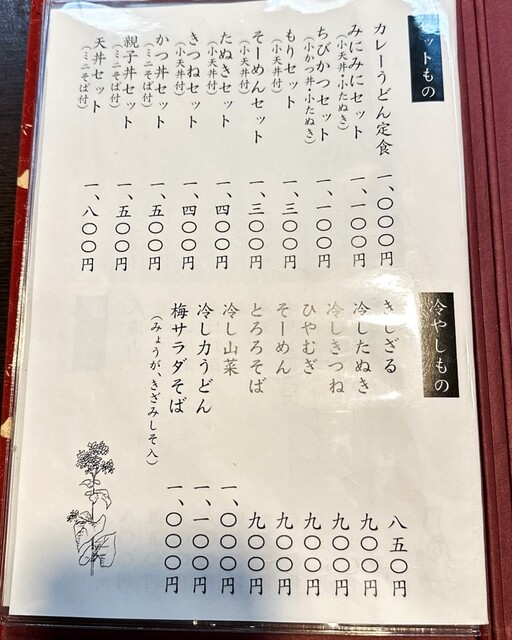 セットもの
カレーうどん定食 一、〇〇〇円
みにみにセット 一、一〇〇円
(小天丼・小たぬき)
ちびかつセット 一、一〇〇円
(小かつ丼・小たぬき)
もりセット 一、三〇〇円
(小天丼付)
そーめんセット 一、三〇〇円
(小天丼付)
たぬきセット 一、四〇〇円
(小天丼付)
きつねセット 一、四〇〇円
(小天丼付)
かつ丼セット 一、五〇〇円
(ミニそば付)
親子丼セット 一、五〇〇円
(ミニそば付)
天丼セット 一、八〇〇円
(ミニそば付)
冷やしもの
きしざる 八五〇円
冷したぬき 九〇〇円
冷しきつね 九〇〇円
ひやむぎ 九〇〇円
そーめん 九〇〇円
とろろそば 九〇〇円
冷し山菜 一、〇〇〇円
冷し力うどん 一、一〇〇円
梅サラダそば 一、〇〇〇円
(みょうが、きざみしそ入)